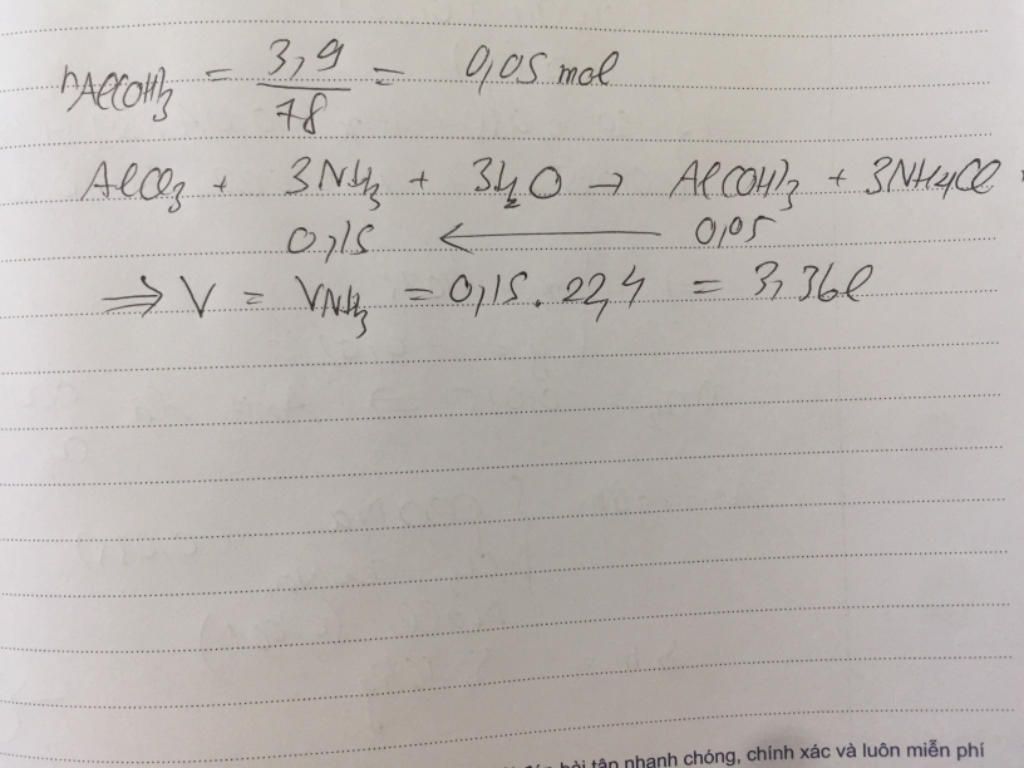 nAl(OH)3 = 3,9/78 = 0,05 mol
AlCl3 + 3NH3 + 3H2O → Al(OH)3 + 3NH4Cl
0,15 ← 0,05
⇒ V = VNH3 = 0,15 . 22,4 = 3,36l
bài tập nhanh chóng, chính xác và luôn miễn phí